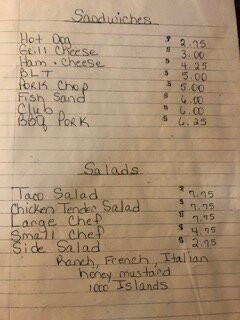 Sandwiches
Hot Dog $ 2.75
Grill Cheese $ 3.00
Ham + Cheese $ 4.25
BLT $ 5.00
Pork Chop $ 5.00
Fish Sand $ 6.00
Club $ 6.00
BBQ Pork $ 6.25
Salads
Taco Salad $ 7.75
Chicken Tender Salad $ 7.75
Large Chef $ 7.75
Small Chef $ 4.75
Side Salad $ 2.75
Ranch, French, Italian
honey mustard
1000 Islands